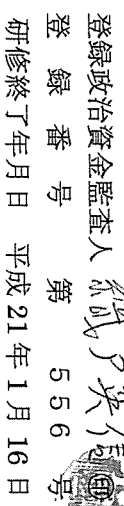 登録政治資金監査人
登録番号 第556号
研修終了年月日 平成21年1月16日